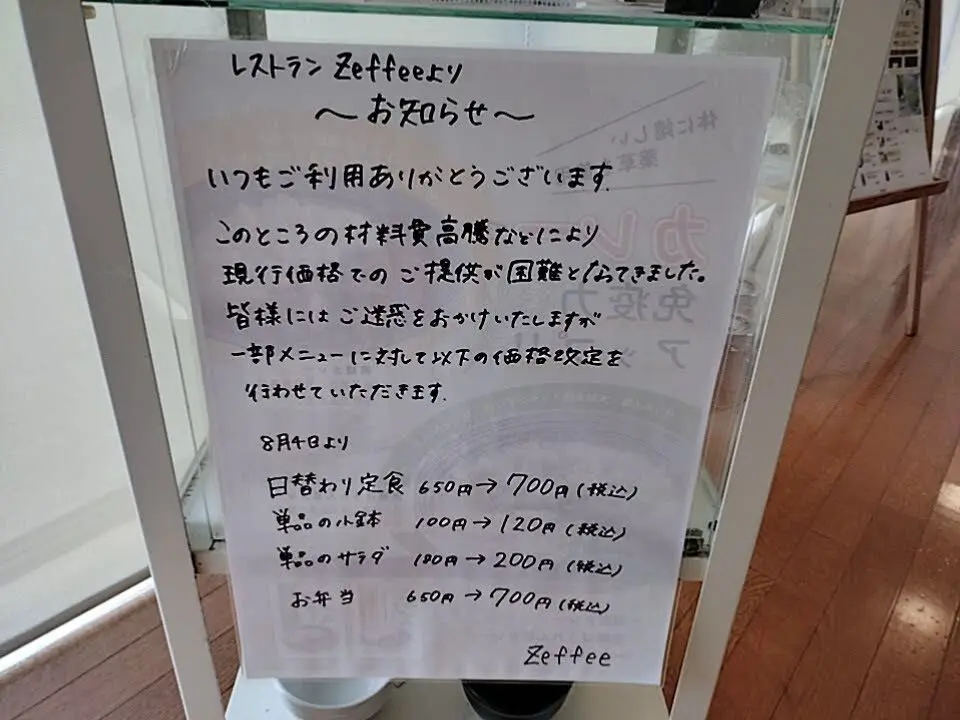 レストラン Zeffeeより
～お知らせ～
いつもご利用ありがとうございます.
このところの材料費高騰などにより
現行価格でのご提供が困難となってきました。
皆様にはご迷惑をおかけいたしますが
一部メニューに対して以下の価格改定を
行わせていただきます.
8月4日より
日替わり定食 650円→700円(税込)
単品の小鉢 100円→120円(税込)
単品のサラダ 180円→200円(税込)
お弁当 650円→700円(税込)
Zeffee
体に嬉しい
カレー
免疫力
アップ